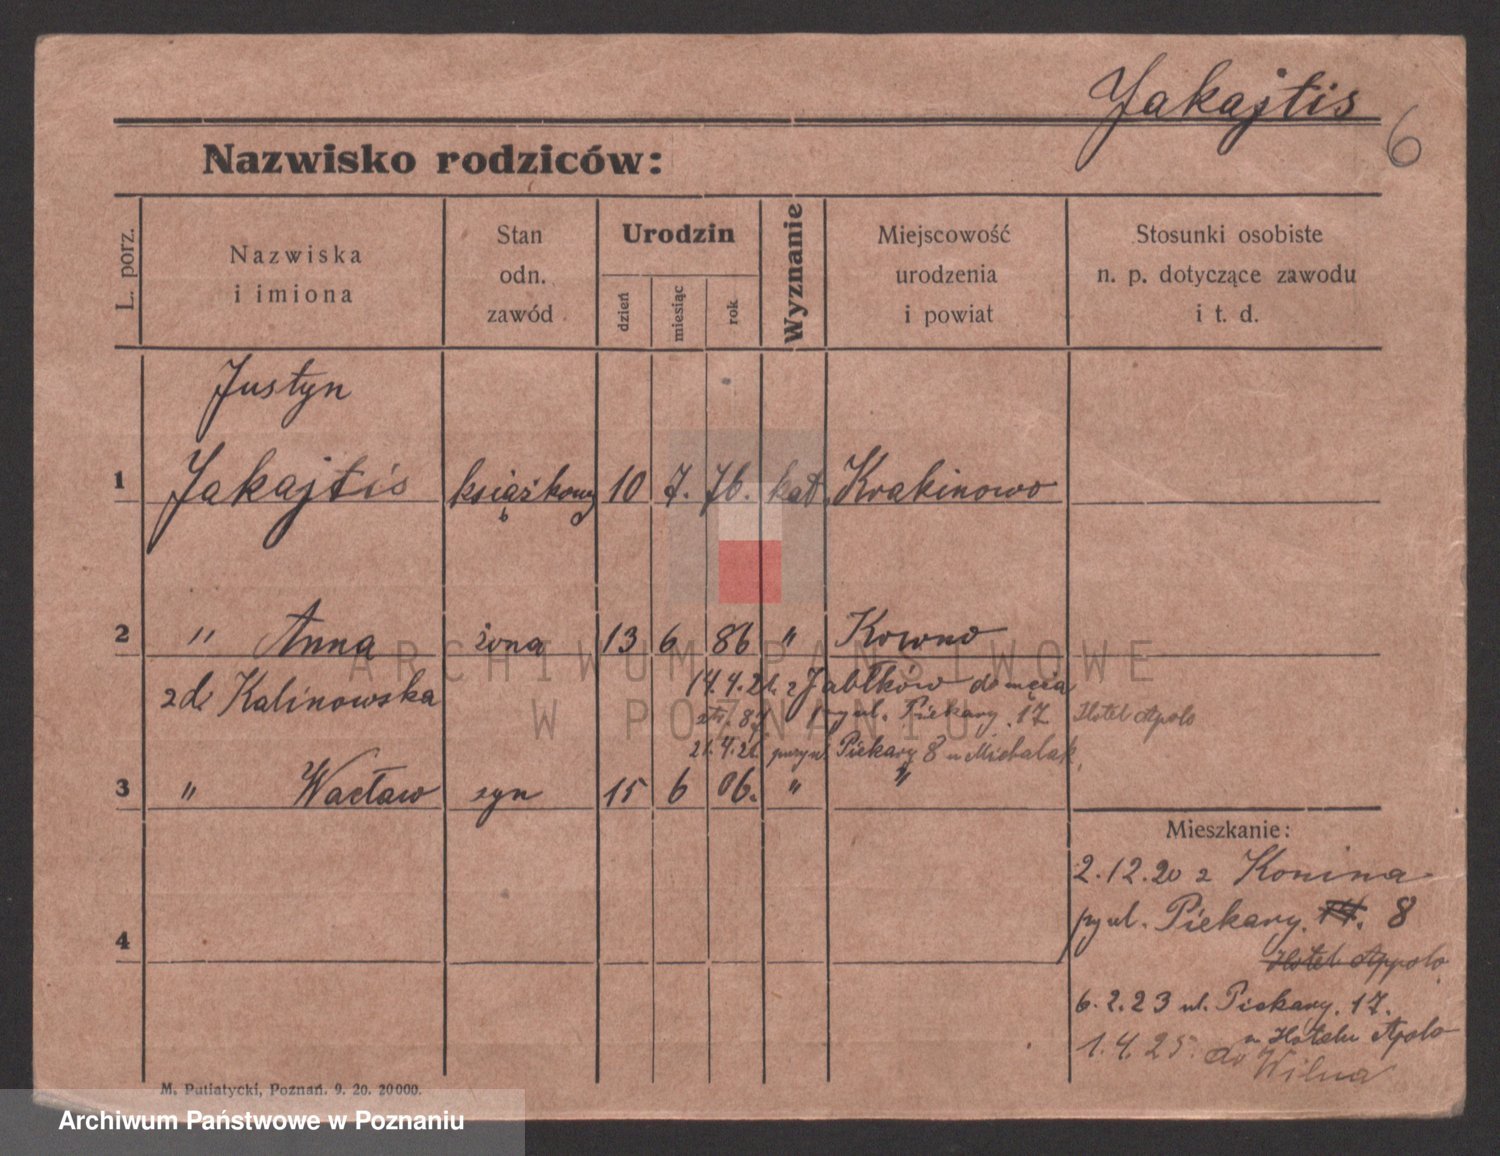 Jakajtis
6
Nazwisko rodziców:
L. porz.
Nazwiska
i imiona
Stan
odn.
zawód
Urodzin
dzień
miesiąc
rok
Wyznanie
Miejscowość
urodzenia
i powiat
Stosunki osobiste
n. p. dotyczące zawodu
i t. d.
Justyn
1 Jakajtis książkowy 10 7. 76. kat. Krakinowo
2 " Anna żona 13 6 86 " Kowno
zd Kalinowska 14.4.21. z Jabłków do męża
ul. Piekary. 17 Hotel Apolo
21.4.21. Piekary 8 u Michalak
3 " Wacław syn 15 6 06. " "
Mieszkanie:
2.12.20 z Konina
ul. Piekary. 8
Hotel Appolo
6.2.23 ul. Piekary. 17.
w Hotelu Apolo
1.4.25. do Wilna
4
M. Putiatycki, Poznań. 9. 20. 20000.
ARCHIWUM PAŃSTWOWE
W POZNANIU
Archiwum Państwowe w Poznaniu